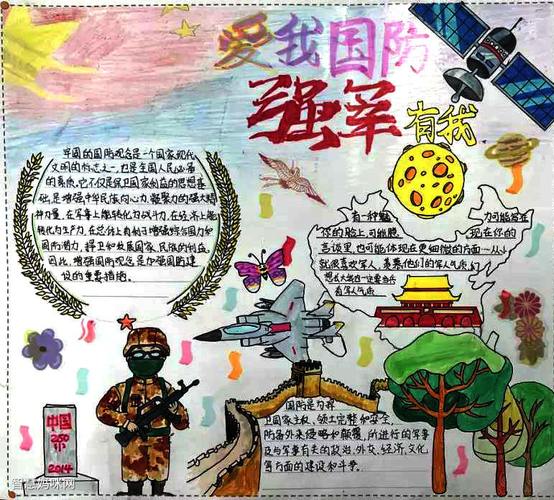 爱我国防
强军
有我
牢固的国防观念是一个国家现代
文明的标志之一,也是全国人民必备
的素质。它不仅是保卫国家利益的思想基
础,是增强中华民族向心力、凝聚力的强大精
神力量,在军事上能转化为战斗力,在经济上能
转化为生产力,在总体上有利于增强综合国力和
国防潜力,捍卫和发展国家、民族的利益。
因此,增强国防观念是加强国防建
设的重要措施。
有一种魅力可能写在
你的脸上,可能现在你的
言谈里,也可能体现在更细微的方面—从小
就很喜欢军人,羡慕他们的军人气质,
想长大
有军人气质
国防是为捍
卫国家主权、领土完整和安全,
防备外来侵略和颠覆,所进行的军事
及与军事有关的政治、外交、经济、文化
等方面的建设和斗争。
中国
2014
智慧妈咪网